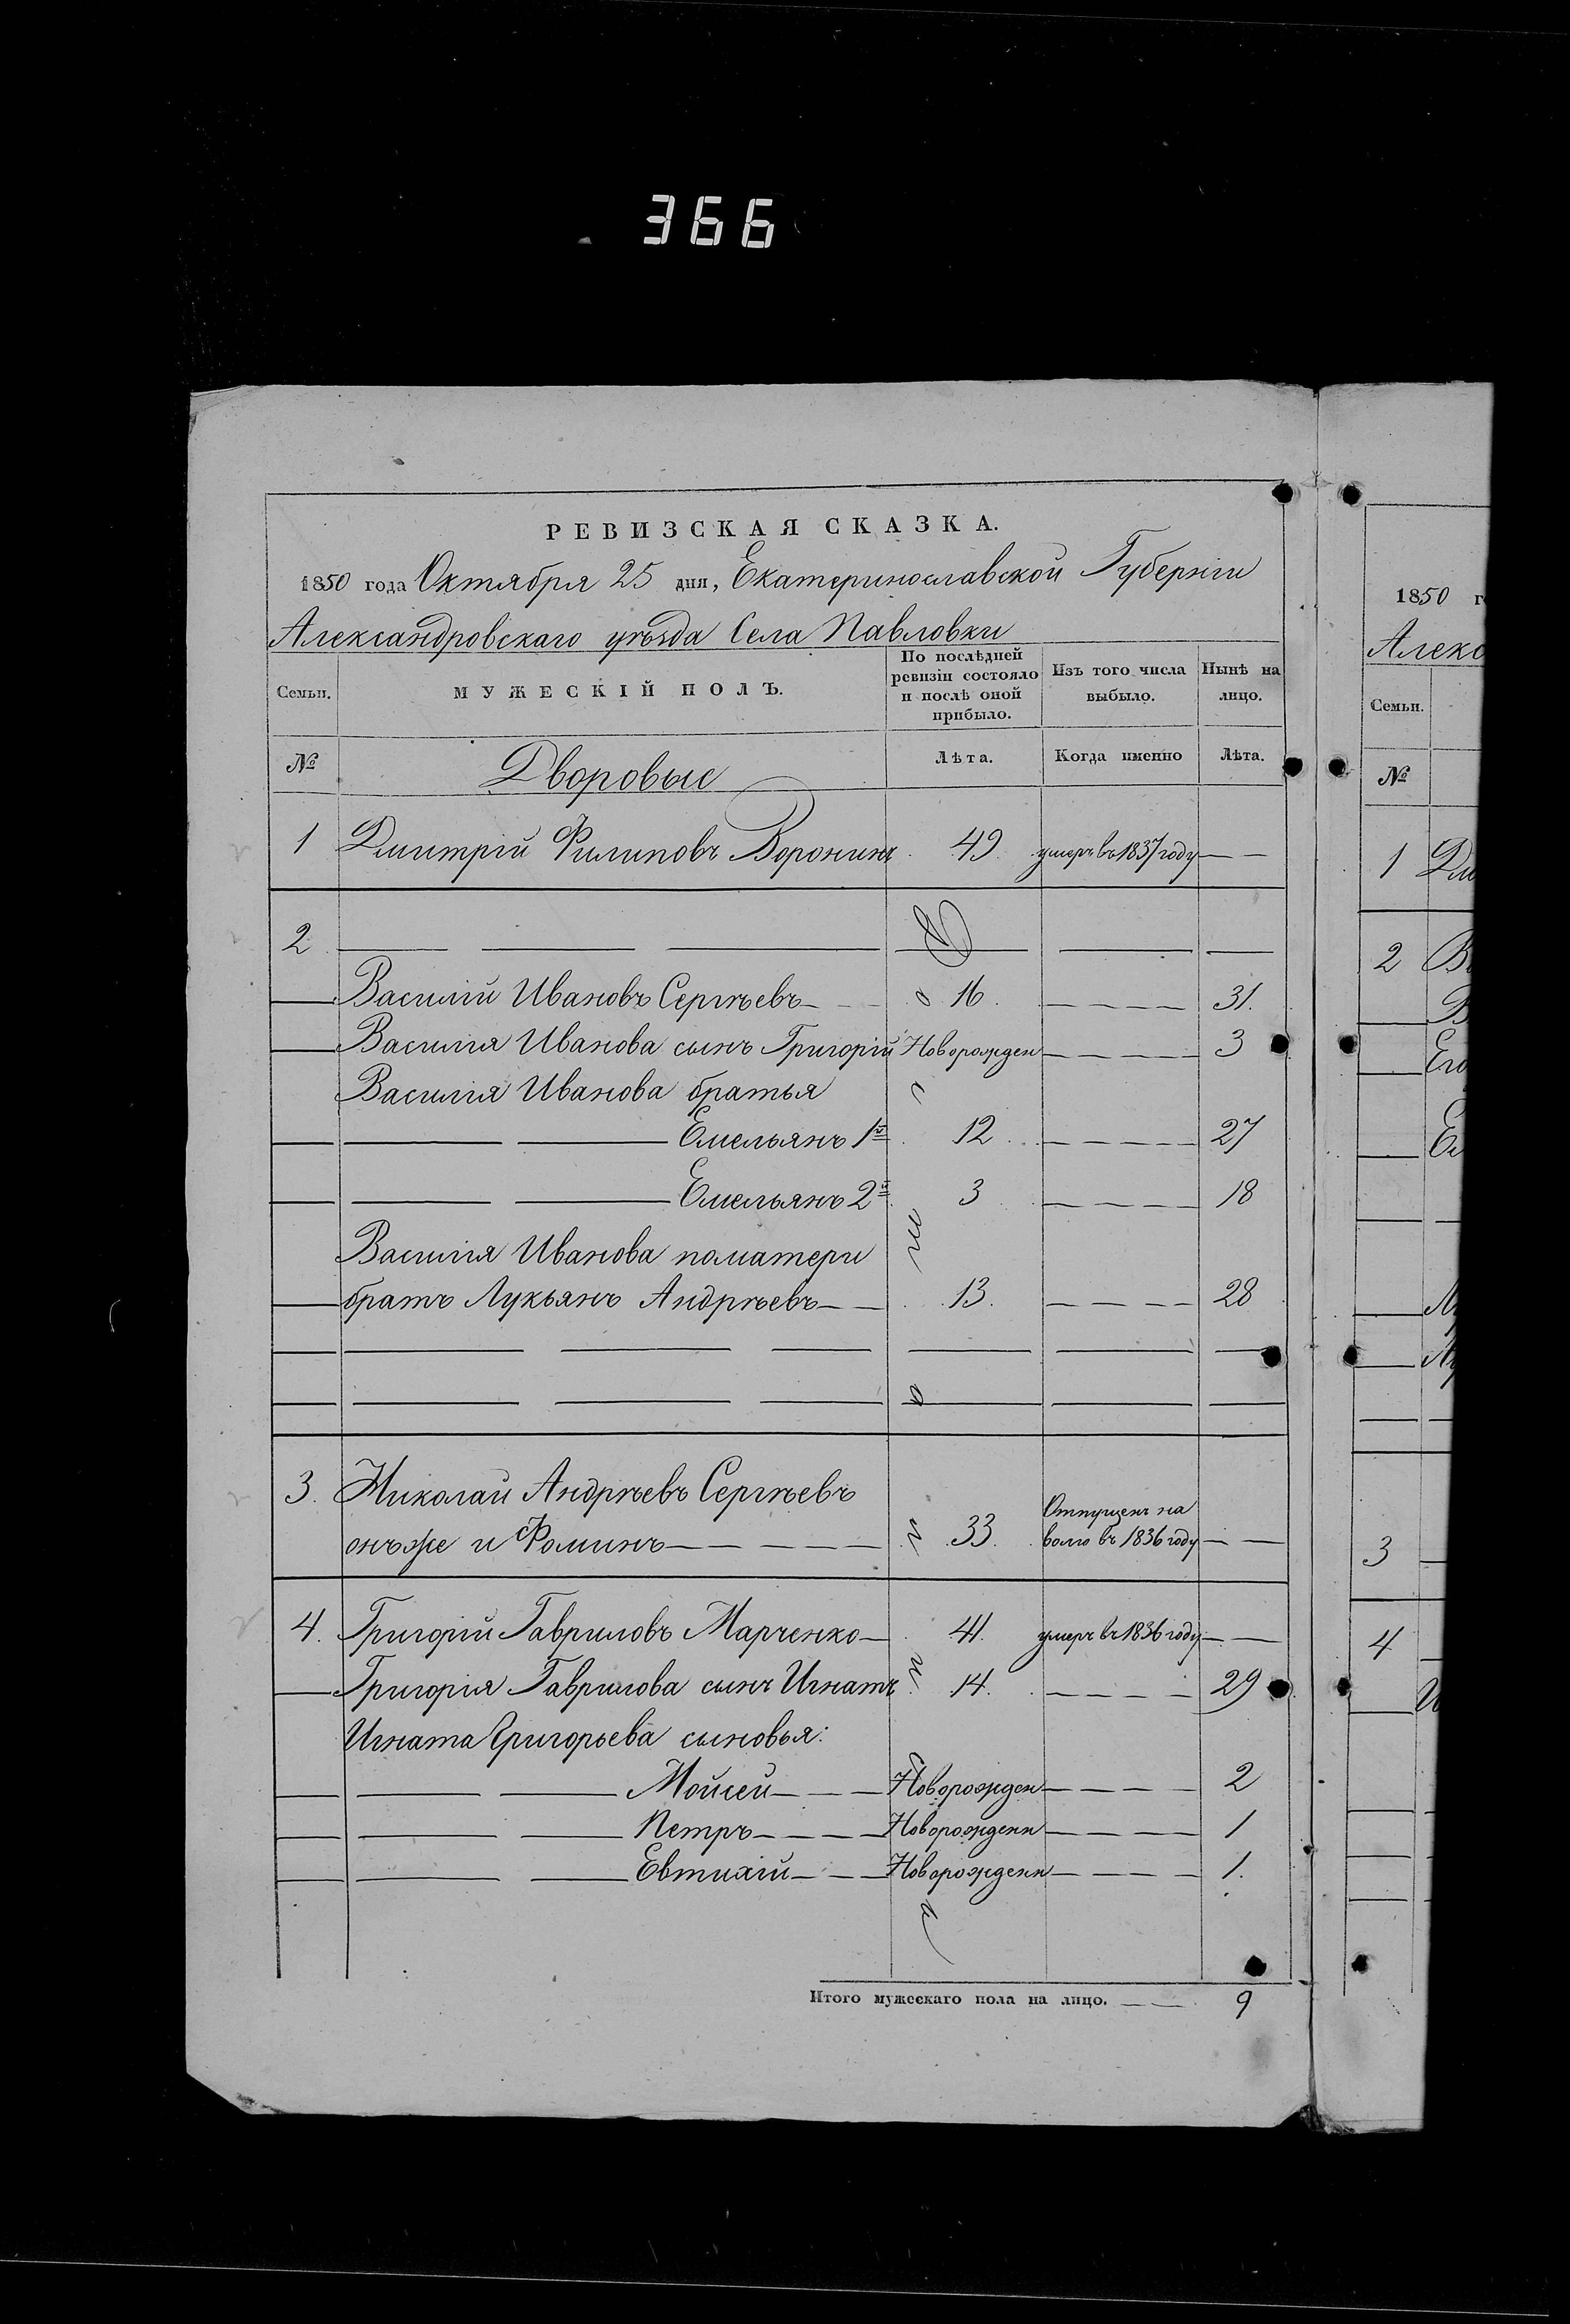 366
РЕВИЗСКАЯ СКАЗКА.
1850 года Октября 25 дня, Екатеринославской Губернiи
Александровскаго уѣзда Села Павловки
Семьи. МУЖЕСКIЙ ПОЛЪ. По послѣдней ревизiи состояло и послѣ оной прибыло. Изъ того числа выбыло. Нынѣ на лицо.
№ Дворовые Лѣта. Когда именно Лѣта.
1 Дмитрiй Филиповъ Воронинъ 49 умеръ въ 1837 году
2
Василiй Ивановъ Сергѣевъ 16. 31.
Василiя Иванова сынъ Григорiй Новорожден 3
Василiя Иванова братья
Емельянъ 1й 12 27
Емельянъ 2й 3 18
Василiя Иванова поматери
братъ Лукьянъ Андрѣевъ 13. 28
3. Николай Андрѣевъ Сергѣевъ
онъже и Фоминъ 33. Отпущенъ на волю въ 1836 году
4. Григорiй Гавриловъ Марченко 41. умеръ въ 1836 году
Григорiя Гаврилова сынъ Игнатъ 14. 29
Игната Григорьева сыновья:
Мойсей Новорожден 2
Петръ Новорожденн 1
Евтихiй Новорожденн 1.
Итого мужескаго пола на лицо. 9
1850
Алекс
Семьи.
№
1
2
3
4